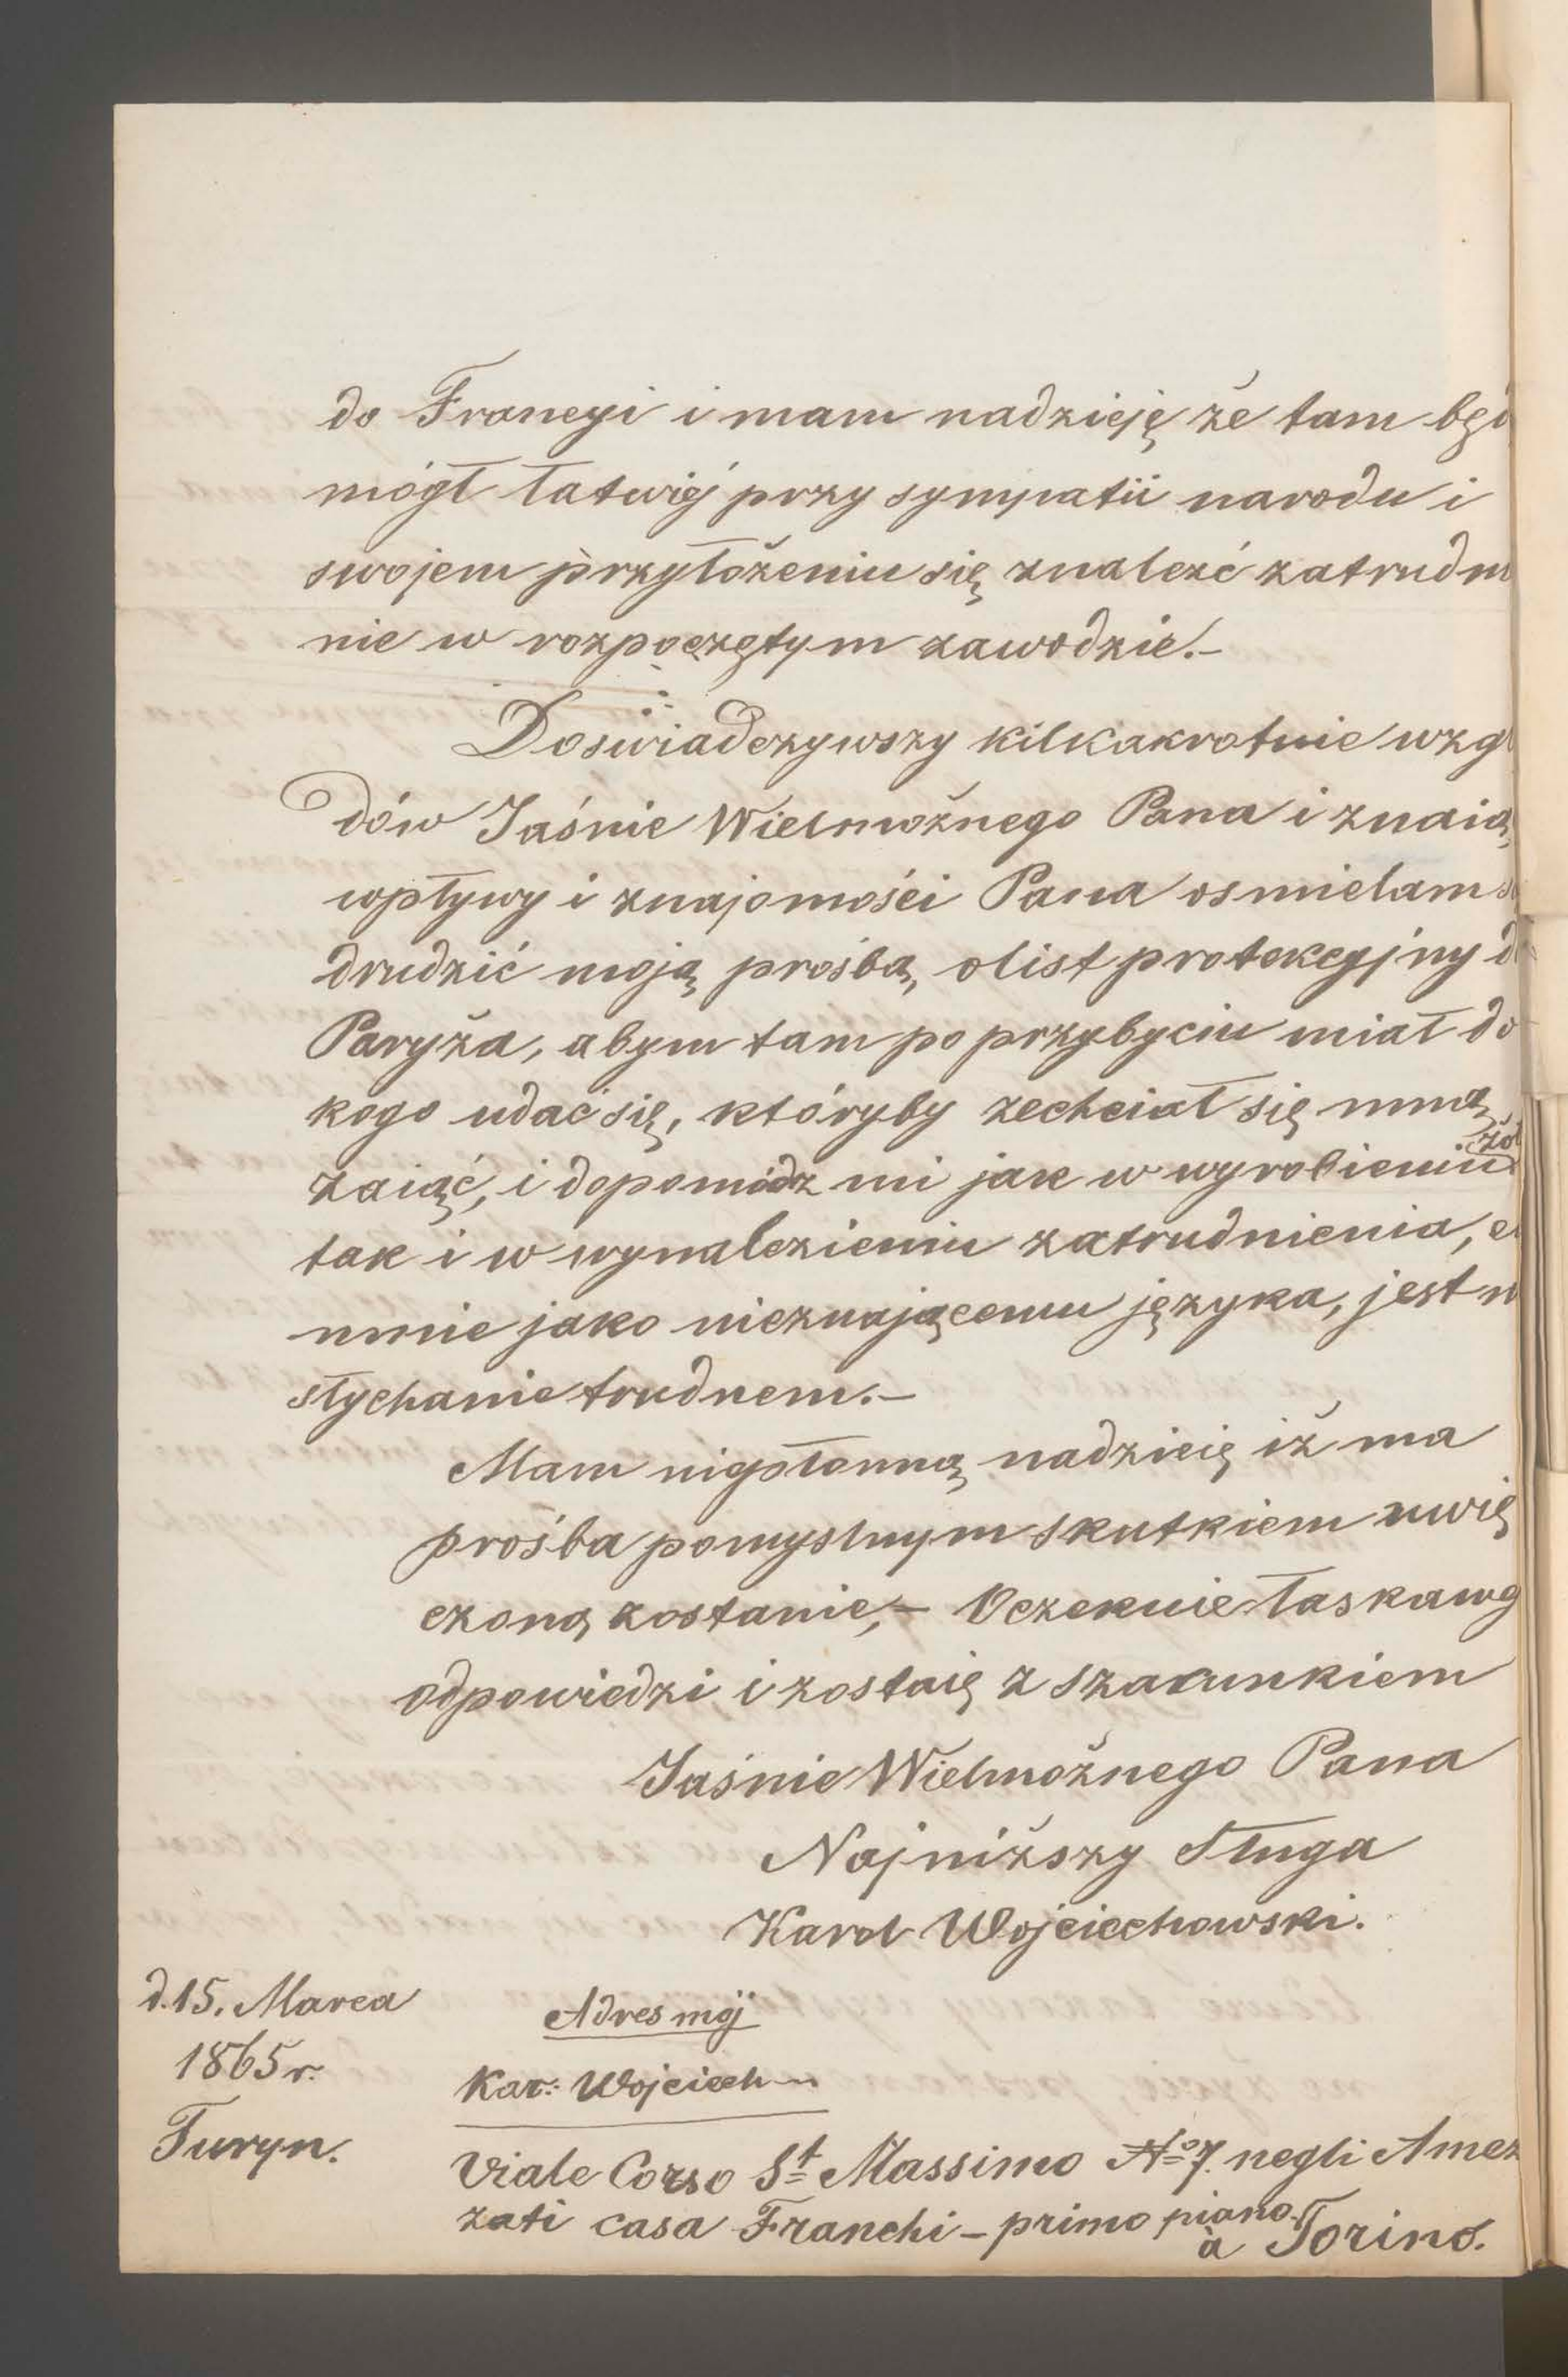 do Francyi i mam nadzieję że tam będ
mógł łatwiej przy sympatii narodu i
swojem przyłożeniu się znaleźć zatrudn
nie w rozpoczętym zawodzie.-
Doświadczywszy kilkakrotnie wzgl
dów Jaśnie Wielmożnego Pana i znaią
wpływy i znajomości Pana osmielam s
drudzić moją prośbą, o list protekcyjny d
Paryża, abym tam po przybyciu miał do
kogo udać się, któryby zechciał się mną
zaiąć, i dopomódz mi jak w wyrobieniu żoł
tak i w wynalezieniu zatrudnienia, c
mnie jako nieznającemu języka, jest n
słychanie trudnem.-
Mam niepłonną nadzieię iż ma
prośba pomyslnym skutkiem uwię
czoną zostanie,- Oczekuie łaskawg
odpowiedzi i zostaię z szacunkiem
Jaśnie Wielmożnego Pana
Najniższy Sługa
Karol Wojciechowski.
d. 15. Marca
1865 r.
Turyn.
Adres mój
Kar: Wojciech
Viale Corso St Massimo No 7. negli Amez
zati casa Franchi - primo piano.
à Torino.